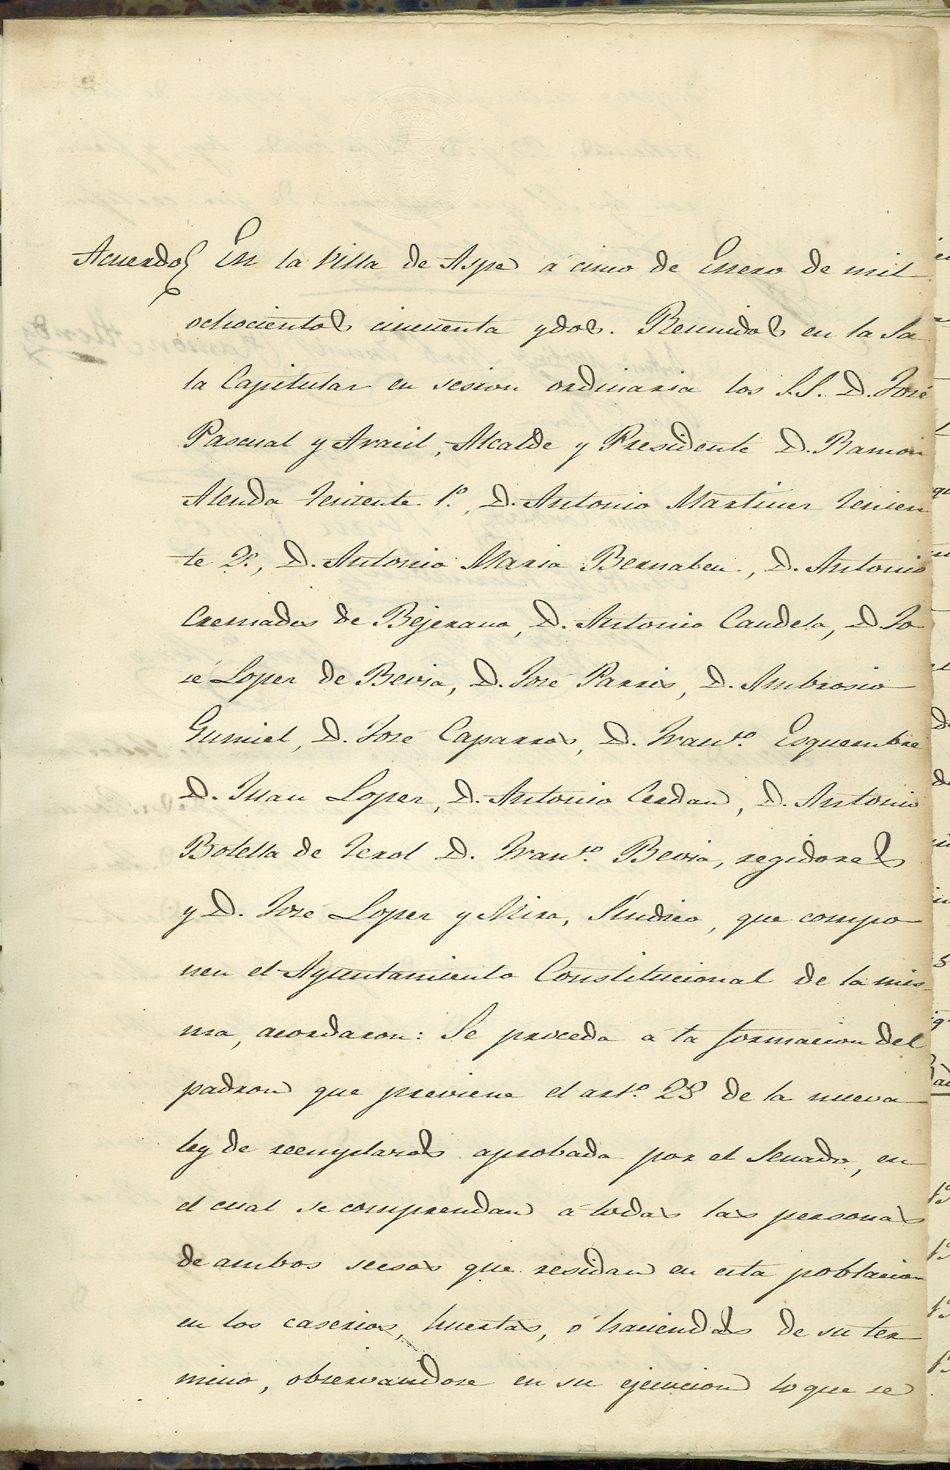 Acuerdo, En la Villa de Aspe á cinco de Enero de mil
ochocientos cincuenta y dos. Reunidos en la Sa
la Capitular en sesion ordinaria los S.S. D. José
Pascual y Aracil, Alcalde y Presidente D. Ramon
Alenda Teniente 1º, D. Antonio Martinez Tenien
te 2º, D. Antonio Maria Bernabeu, D. Antonio
Cremades de Bejerano, D. Antonio Candela, D Jo
sé Lopez de Bevia, D. José Parres, D. Ambrosio
Gumiel, D. José Caparros, D. Franco. Esquembre
D. Juan Lopez, D. Antonio Cerdan, D. Antonio
Botella de Terol D. Franco. Bevia, regidores
y D. José Lopez y Mira, Sindico, que compo
nen el Ayuntamiento Constitucional de la mis-
ma, acordaron: Se proceda á la formacion del
padron que previene el arto. 28 de la nueva
ley de reemplazos aprobada por el Senado, en
el cual se comprendan á todas las personas
de ambos secsos que residan en esta poblacion
en los caserios, huertas, ó haciendas de su ter
mino, observandose en su ejecucion lo que se